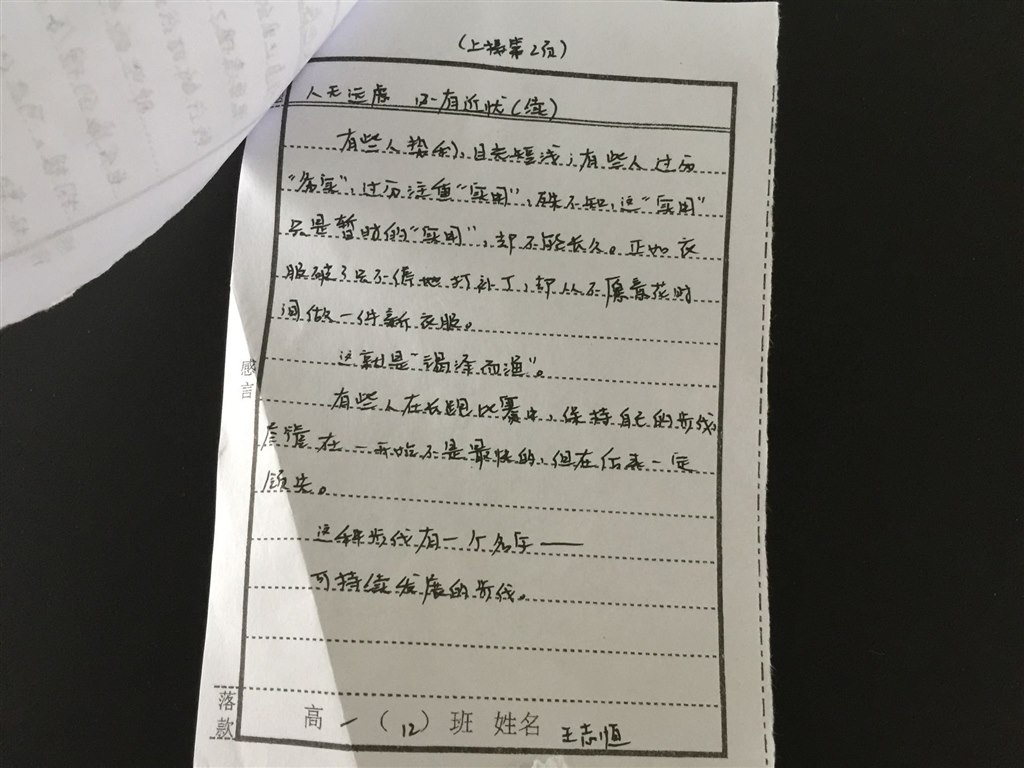 (上接第2页)
人无远虑 必有近忧(续)
有些人势利,目光短浅;有些人过分
"务实",过分注重"实用",殊不知,这"实用"
只是暂时的"实用",却不能长久。正如衣
服破了只不停地打补丁,却从不愿意花时
间做一件新衣服。
这就是"竭泽而渔"。
有些人在长跑比赛中,保持自己的步伐
尽管在一开始不是最快的,但在后来一定
领先。
这种步伐有一个名字——
可持续发展的步伐。
感言
落款
高一(12)班 姓名 王志恒